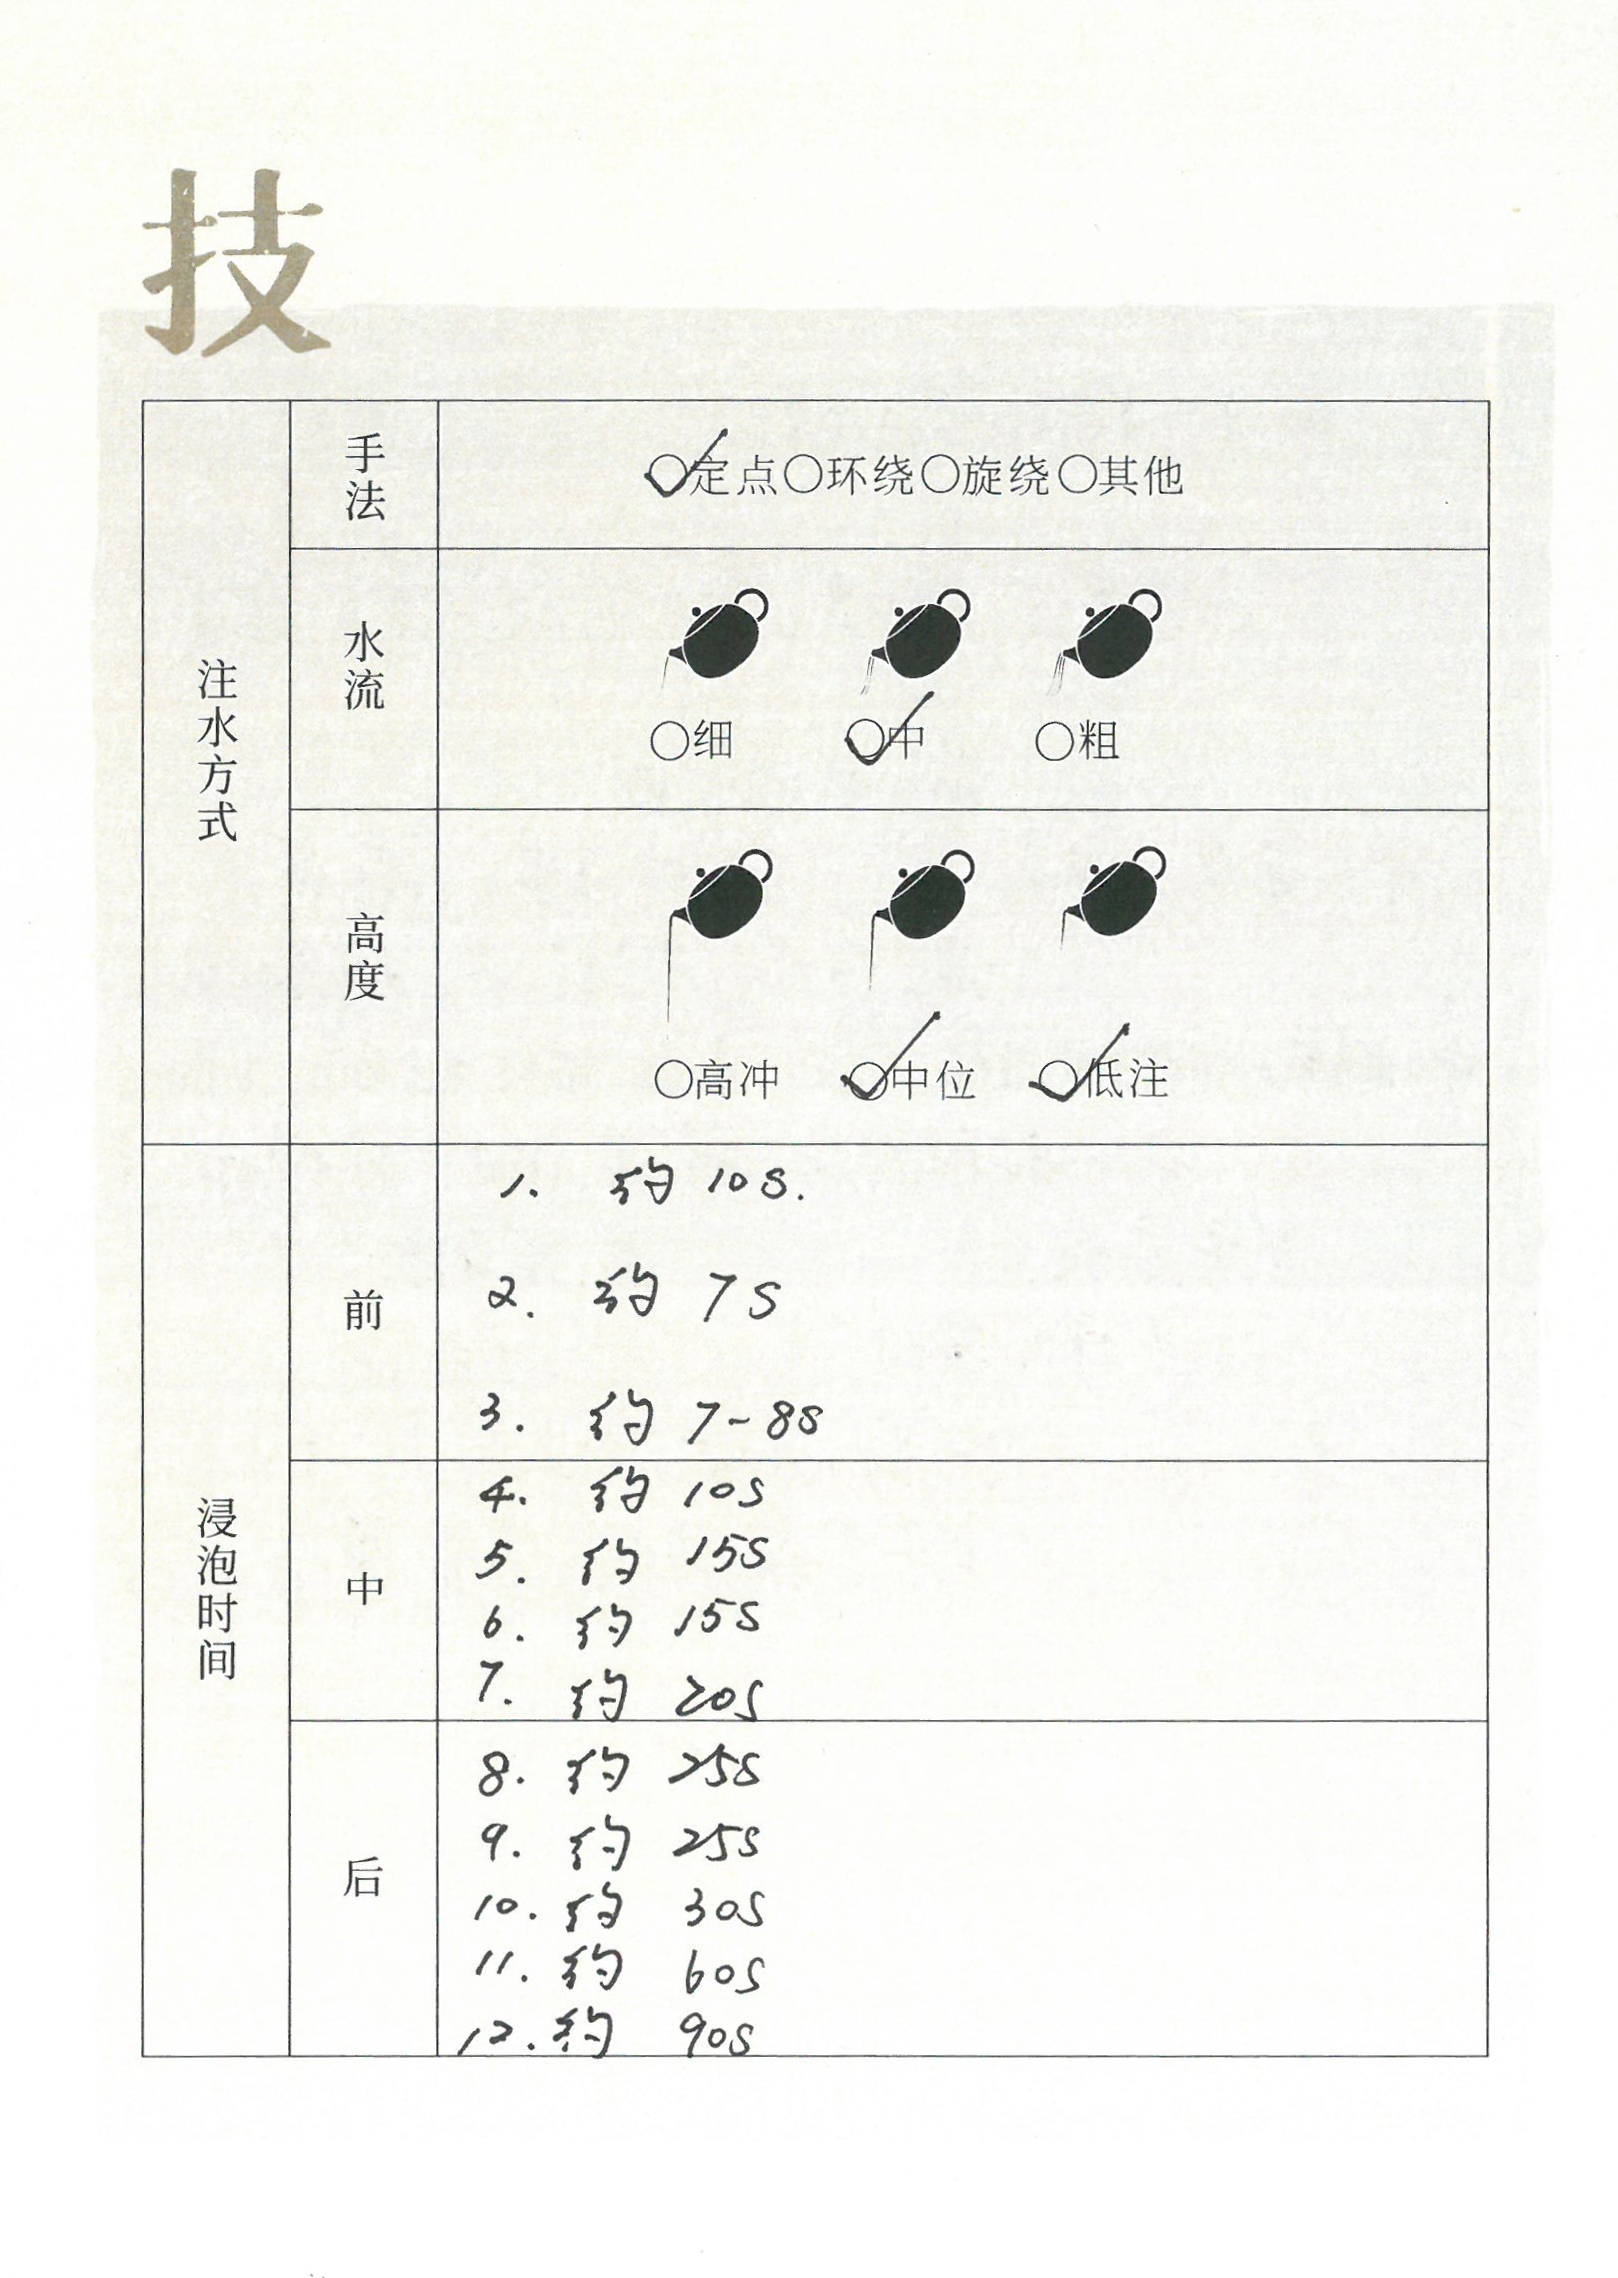 技
注水方式
手法
○定点○环绕○旋绕○其他
水流
○细 ○中 ○粗
高度
○高冲 ○中位 ○低注
浸泡时间
前
1. 约 10S.
2. 约 7S
3. 约 7-8S
中
4. 约 10S
5. 约 15S
6. 约 15S
7. 约 20S
后
8. 约 25S
9. 约 25S
10. 约 30S
11. 约 60S
12. 约 90S